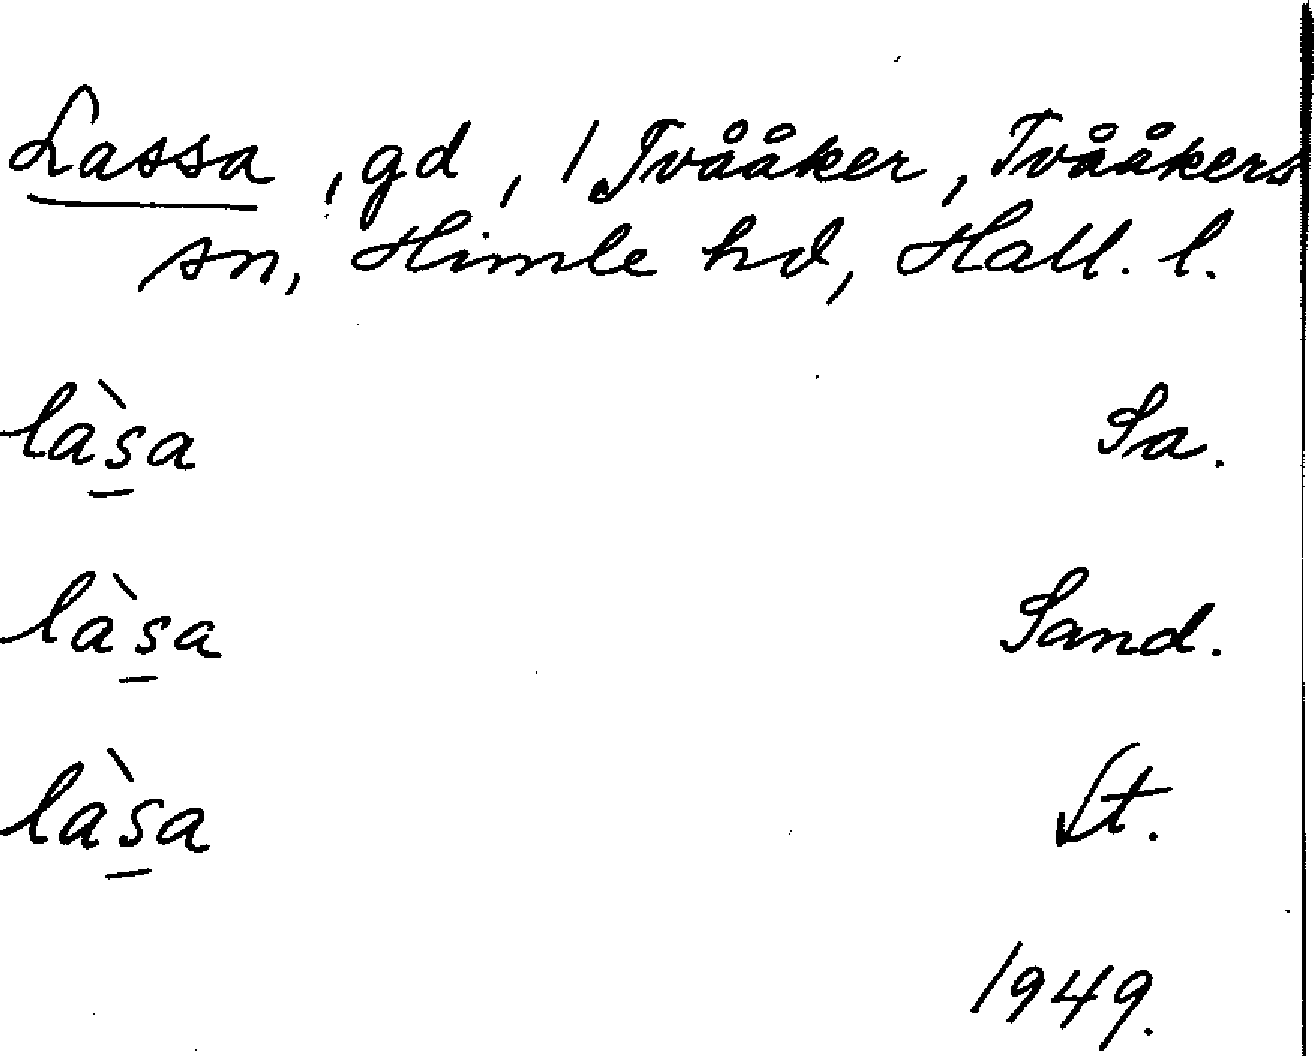 Lassa, gd, 1 Tvååker, Tvååkers
sn, Himle hd, Hall. l.
làs̲a Sa.
làs̲a Sand.
làs̲a St.
1949.